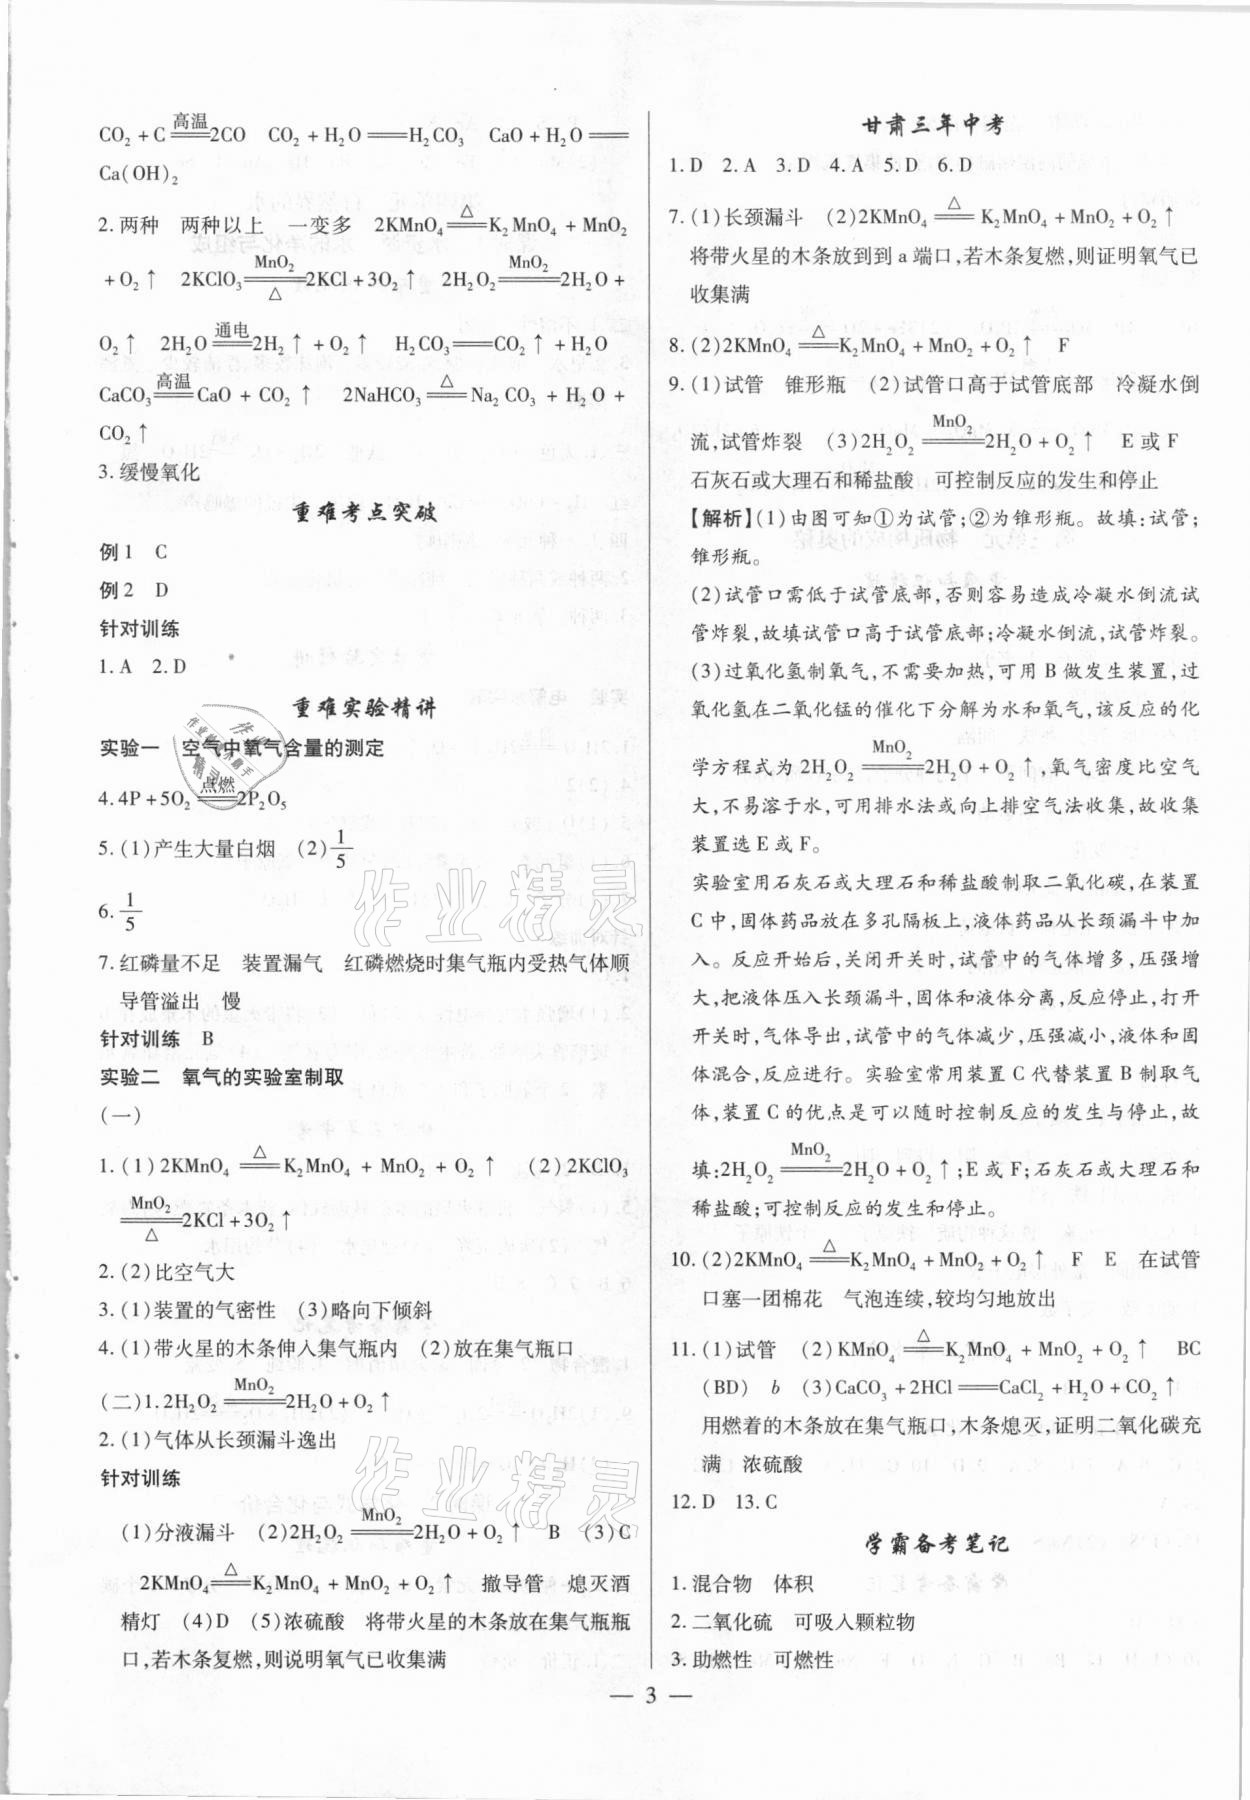 CO₂+C═高温═2CO CO₂+H₂O═══H₂CO₃ CaO+H₂O═══
Ca(OH)₂
2.两种 两种以上 一变多 2KMnO₄═△═K₂MnO₄+MnO₂
+O₂↑ 2KClO₃═MnO₂/△═2KCl+3O₂↑ 2H₂O₂═MnO₂═2H₂O+
O₂↑ 2H₂O═通电═2H₂↑+O₂↑ H₂CO₃═══CO₂↑+H₂O
CaCO₃═高温═CaO+CO₂↑ 2NaHCO₃═△═Na₂CO₃+H₂O+
CO₂↑
3.缓慢氧化
重难考点突破
例1 C
例2 D
针对训练
1.A 2.D
重难实验精讲
实验一 空气中氧气含量的测定
4.4P+5O₂═点燃═2P₂O₅
5.(1)产生大量白烟 (2)1/5
6.1/5
7.红磷量不足 装置漏气 红磷燃烧时集气瓶内受热气体顺
导管溢出 慢
针对训练 B
实验二 氧气的实验室制取
(一)
1.(1)2KMnO₄═△═K₂MnO₄+MnO₂+O₂↑ (2)2KClO₃
═MnO₂/△═2KCl+3O₂↑
2.(2)比空气大
3.(1)装置的气密性 (3)略向下倾斜
4.(1)带火星的木条伸入集气瓶内 (2)放在集气瓶口
(二)1.2H₂O₂═MnO₂═2H₂O+O₂↑
2.(1)气体从长颈漏斗逸出
针对训练
(1)分液漏斗 (2)2H₂O₂═MnO₂═2H₂O+O₂↑ B (3)C
2KMnO₄═△═K₂MnO₄+MnO₂+O₂↑ 撤导管 熄灭酒
精灯 (4)D (5)浓硫酸 将带火星的木条放在集气瓶瓶
口,若木条复燃,则说明氧气已收集满
甘肃三年中考
1.D 2.A 3.D 4.A 5.D 6.D
7.(1)长颈漏斗 (2)2KMnO₄═△═K₂MnO₄+MnO₂+O₂↑
将带火星的木条放到到a端口,若木条复燃,则证明氧气已
收集满
8.(2)2KMnO₄═△═K₂MnO₄+MnO₂+O₂↑ F
9.(1)试管 锥形瓶 (2)试管口高于试管底部 冷凝水倒
流,试管炸裂 (3)2H₂O₂═MnO₂═2H₂O+O₂↑ E或F
石灰石或大理石和稀盐酸 可控制反应的发生和停止
【解析】(1)由图可知①为试管;②为锥形瓶。故填:试管;
锥形瓶。
(2)试管口需低于试管底部,否则容易造成冷凝水倒流试
管炸裂,故填试管口高于试管底部;冷凝水倒流,试管炸裂。
(3)过氧化氢制氧气,不需要加热,可用B做发生装置,过
氧化氢在二氧化锰的催化下分解为水和氧气,该反应的化
学方程式为2H₂O₂═MnO₂═2H₂O+O₂↑,氧气密度比空气
大,不易溶于水,可用排水法或向上排空气法收集,故收集
装置选E或F。
实验室用石灰石或大理石和稀盐酸制取二氧化碳,在装置
C中,固体药品放在多孔隔板上,液体药品从长颈漏斗中加
入。反应开始后,关闭开关时,试管中的气体增多,压强增
大,把液体压入长颈漏斗,固体和液体分离,反应停止,打开
开关时,气体导出,试管中的气体减少,压强减小,液体和固
体混合,反应进行。实验室常用装置C代替装置B制取气
体,装置C的优点是可以随时控制反应的发生与停止,故
填:2H₂O₂═MnO₂═2H₂O+O₂↑;E或F;石灰石或大理石和
稀盐酸;可控制反应的发生和停止。
10.(2)2KMnO₄═△═K₂MnO₄+MnO₂+O₂↑ F E 在试管
口塞一团棉花 气泡连续,较均匀地放出
11.(1)试管 (2)KMnO₄═△═K₂MnO₄+MnO₂+O₂↑ BC
(BD) b (3)CaCO₃+2HCl═══CaCl₂+H₂O+CO₂↑
用燃着的木条放在集气瓶口,木条熄灭,证明二氧化碳充
满 浓硫酸
12.D 13.C
学霸备考笔记
1.混合物 体积
2.二氧化硫 可吸入颗粒物
3.助燃性 可燃性
— 3 —
作业精灵
作业精灵